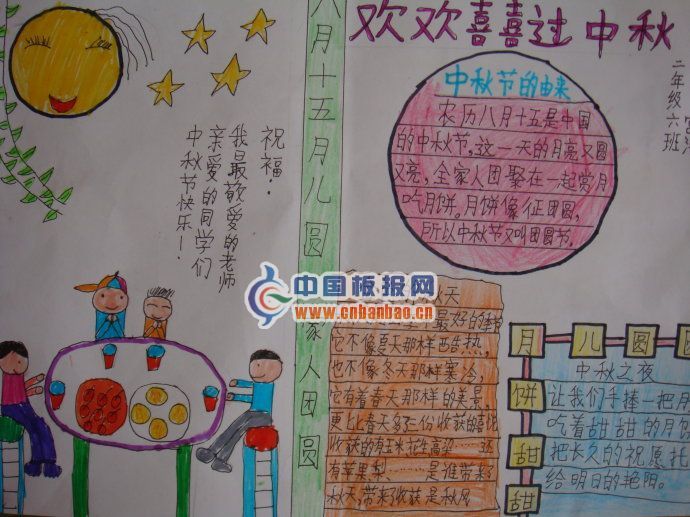 欢欢喜喜过中秋
二年级
六班
八月十五月儿圆
家人团圆
祝福:
我最敬爱的老师
亲爱的同学们
中秋节快乐!
中秋节的由来
农历八月十五是中国
的中秋节,这一天的月亮又圆
又亮,全家人团聚在一起赏月
吃月饼。月饼像征团圆,
所以中秋节又叫团圆节。
中国板报网
www.cnbanbao.cn
秋天
最好的季节
它不像夏天那样酷热,
也不像冬天那样寒冷,
它有着春天那样的美景,
更比春天多了份收获的喜悦
收获的有玉米花生高粱……
有苹果梨……是谁带来
秋天,带来收获是秋风
月儿圆
饼甜甜
中秋之夜
让我们手捧一把月
吃着甜甜的月饼
把长久的祝愿托
给明日的艳阳。